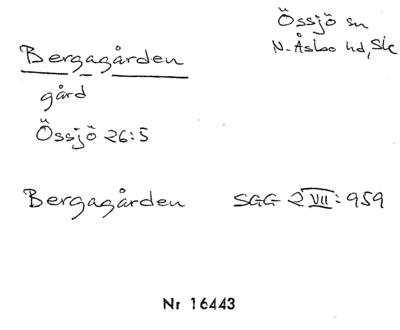 Össjö sn
N. Åsbo hd, Sk
Bergagården
gård
Össjö 26:5
Bergagården SGG 2 VII: 959
Nr 16443